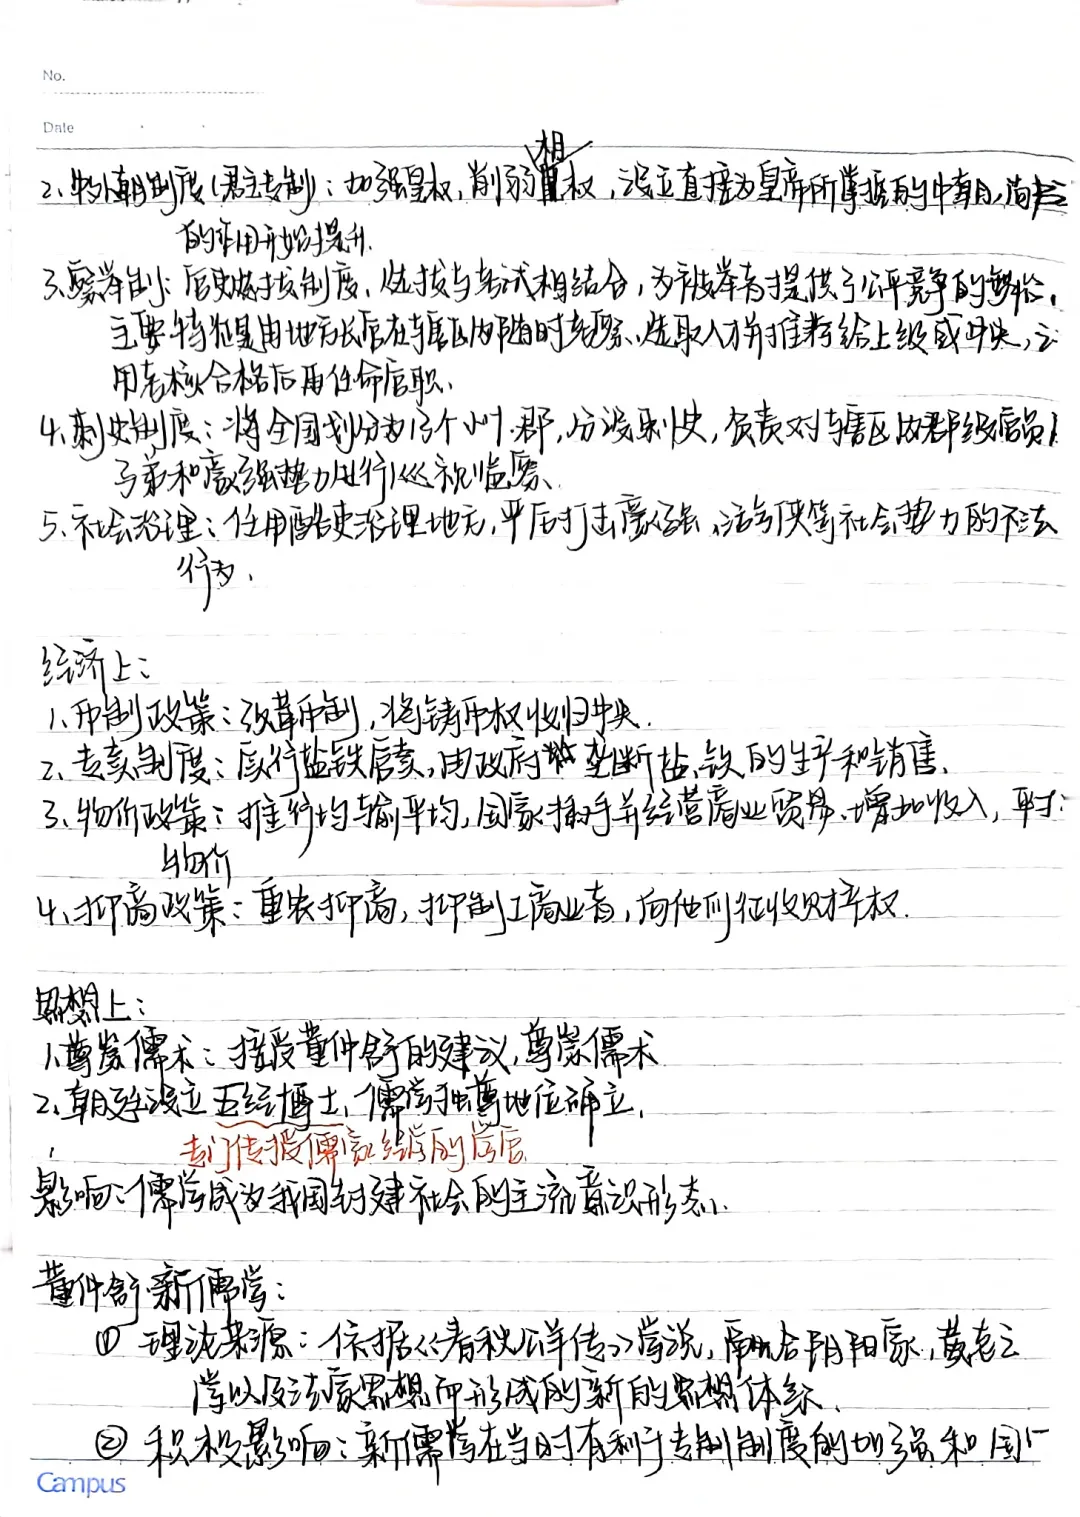 No.
Date
相
2、中外朝制度(君主专制):加强皇权,削弱相权,设立直接为皇帝所掌握的中朝,尚书
的作用开始提升.
3、察举制:官吏选拔制度、选拔与考试相结合,为被举者提供了公平竞争的
主要特征是由地方长官在辖区内随时考察、选取人才并推荐给上级或中央,
用考核合格后再任命官职、
4、刺史制度:将全国划分为13个州郡,分设刺史,负责对辖区内郡级官员
子弟和豪强势力进行巡视监察、
5、社会治理:任用酷吏治理地方,严厉打击豪强、游侠等社会势力的不法
行为、
经济上:
1、币制政策:改革币制,将铸币权收归中央.
2、专卖制度:实行盐铁官卖,由政府垄断盐、铁的生产和销售.
3、物价政策:推行均输平均,国家插手并经营商业贸易、增加收入,平抑
物价
4、抑商政策:重农抑商,抑制工商业者,向他们征收财产权.
思想上:
1、尊崇儒术:接受董仲舒的建议,尊崇儒术
2、朝廷设立五经博士、儒学独尊地位确立.
专门传授儒家经学的学官
影响:儒学成为我国封建社会的主流意识形态.
董仲舒新儒学:
① 理论来源:依据《春秋公羊传》学说,融合阴阳家,黄老之
学以及法家思想而形成的新的思想体系.
② 积极影响:新儒学在当时有利于专制制度的加强和国
Campus